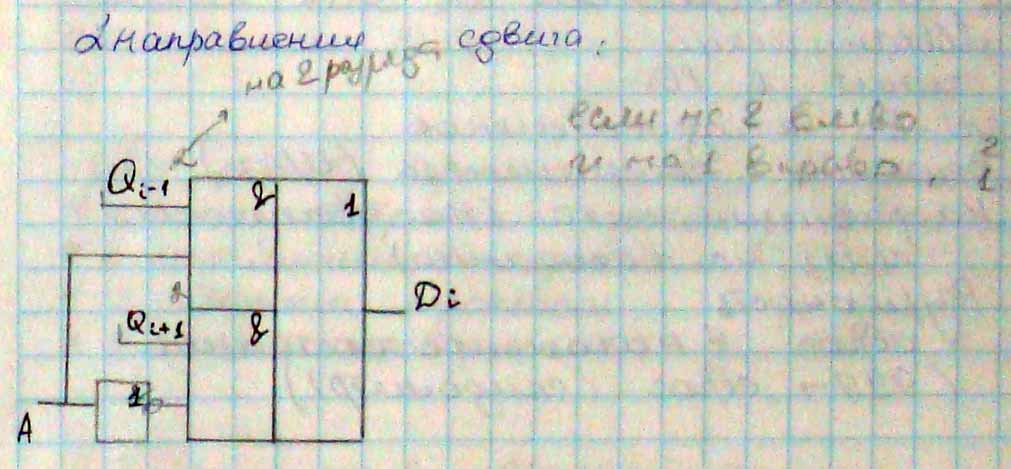 2 направления сдвига.
на 2 разряда
если на 2 влево
и на 1 вправо, 2
1
2
Qi-1 & 1
2
Qi+1 & Di
A 1